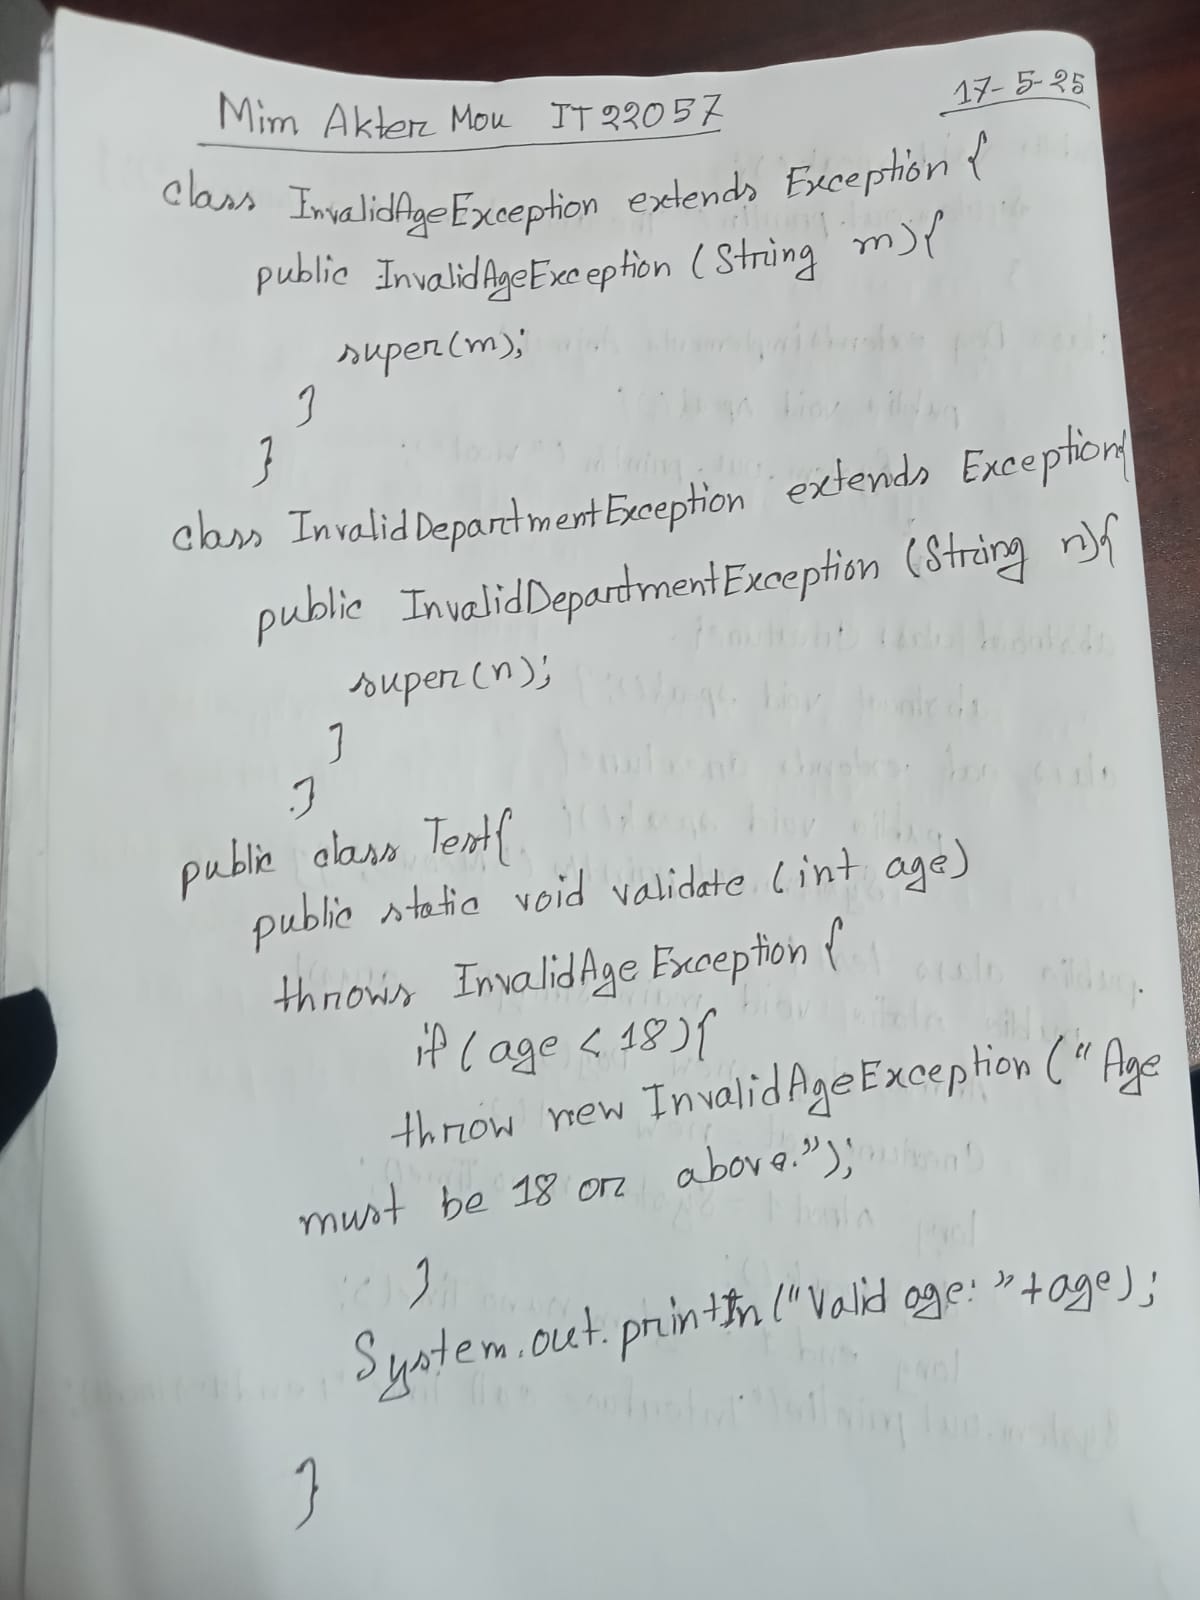 Mim Akter Mou IT22057
17-5-25
class InvalidAgeException extends Exception {
public InvalidAgeException (String m){
super(m);
}
}
class InvalidDepartmentException extends Exception{
public InvalidDepartmentException (String n){
super(n);
}
}
public class Test{
public static void validate (int age)
throws InvalidAgeException {
if (age < 18){
throw new InvalidAgeException ("Age
must be 18 or above.");
}
System.out.println ("Valid age: "+age);
}